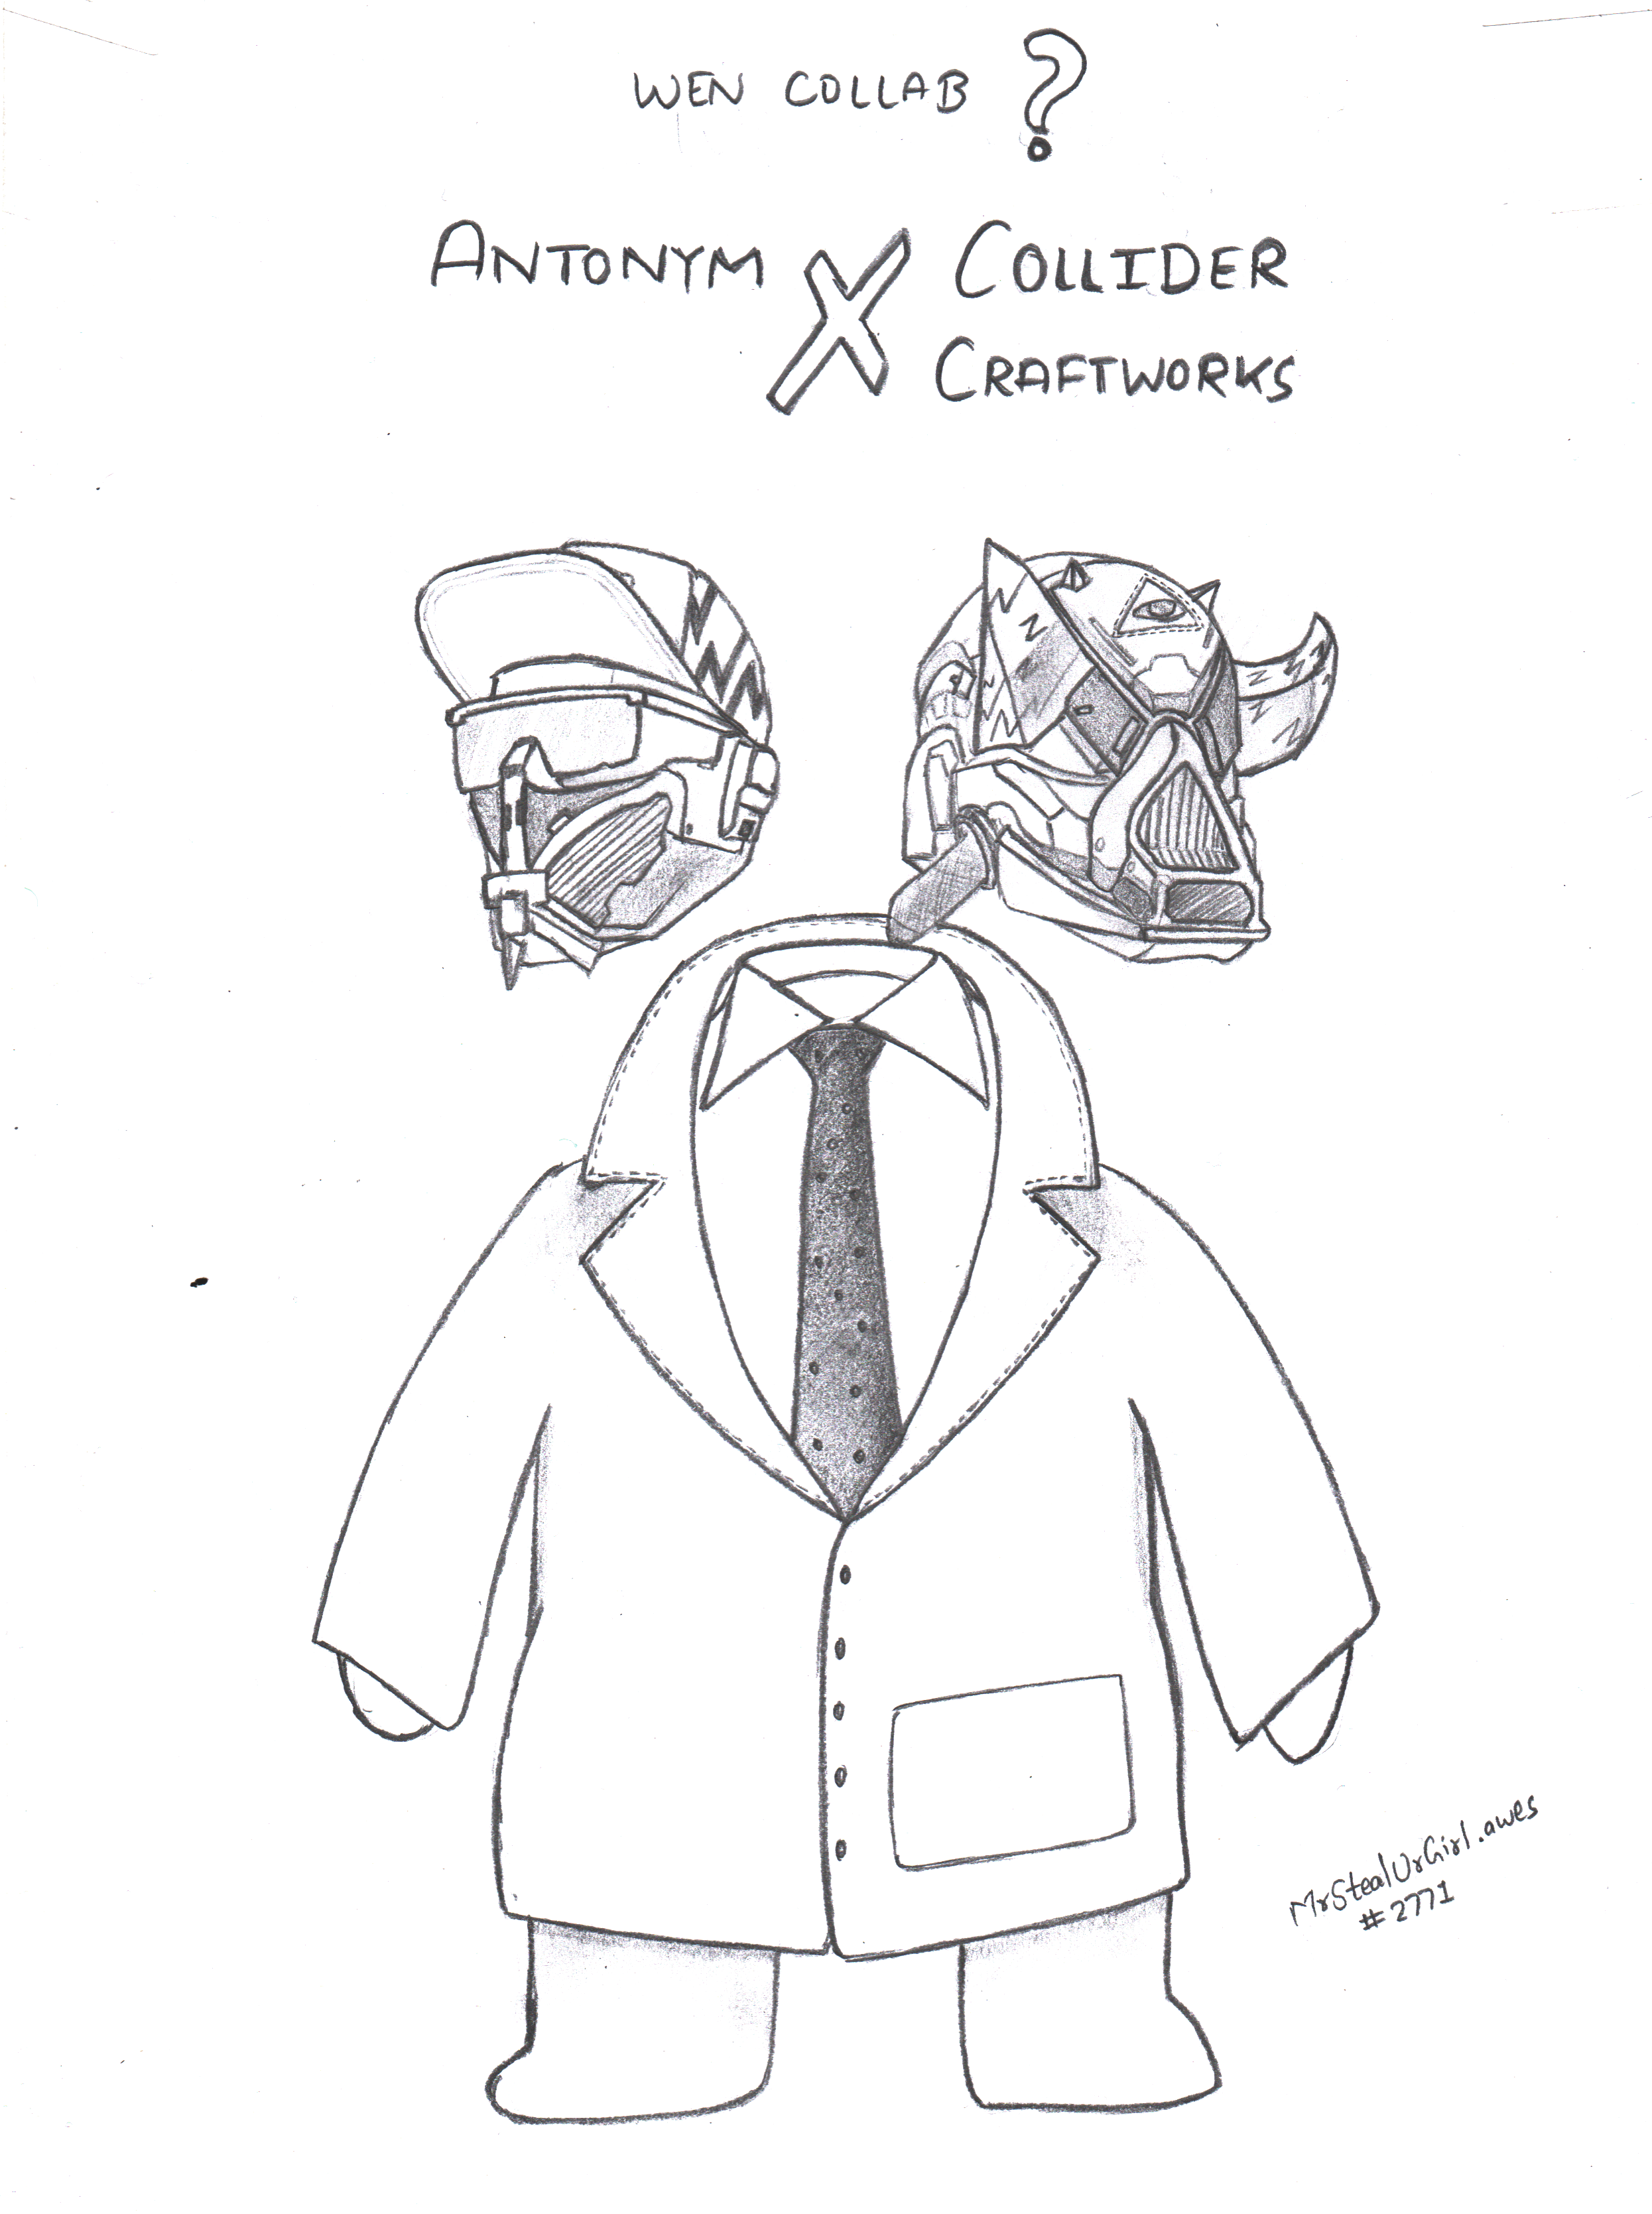 WEN COLLAB ?
ANTONYM X COLLIDER
CRAFTWORKS
MrStealUrGirl.awes
#2771